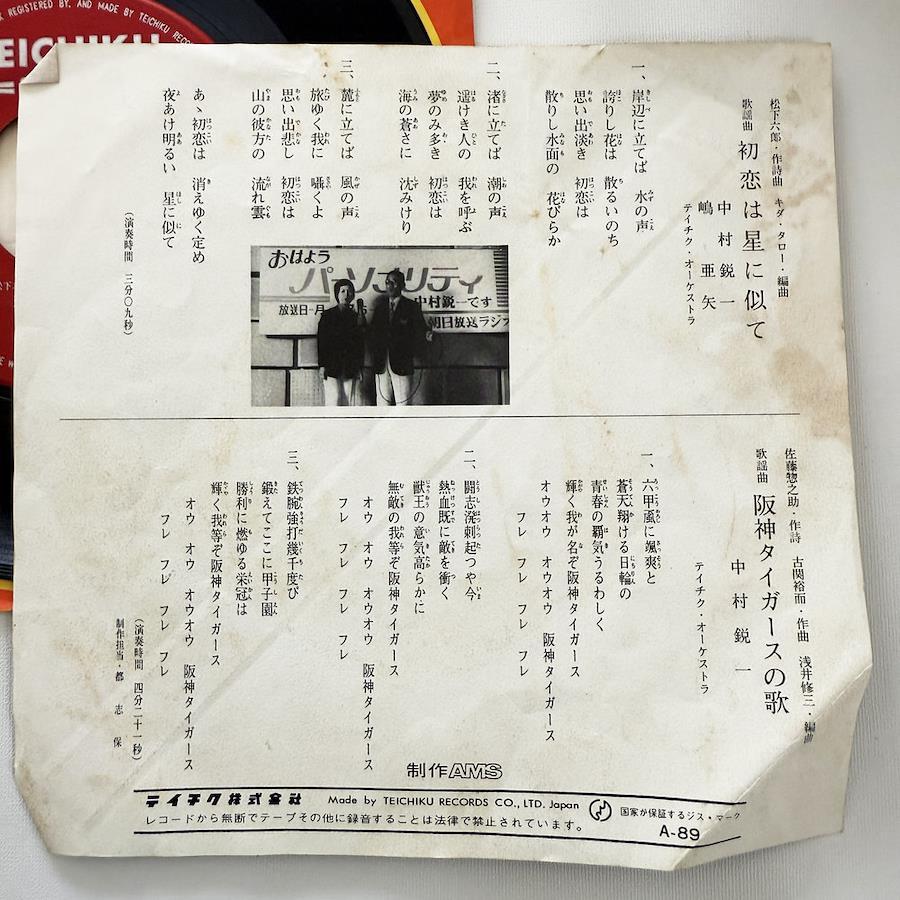 REGISTERED BY. AND MADE BY TEICHIKU RECO
TEICHIKU
松下六郎・作詩曲 キダ・タロー・編曲
歌謡曲 初恋は星に似て
中村鋭一
嶋亜矢
テイチク・オーケストラ
一、岸辺に立てば 水の声
誇りし花は 散るいのち
思い出淡き 初恋は
散りし水面の 花びらか
二、渚に立てば 潮の声
遥けき人の 我を呼ぶ
夢のみ多き 初恋は
海の蒼さに 沈みけり
三、麓に立てば 風の声
旅ゆく我に 囁くよ
思い出悲し 初恋は
山の彼方の 流れ雲
あゝ初恋は 消えゆく定め
夜あけ明るい 星に似て
(演奏時間 三分〇九秒)
おはよう
パーソナリティ
中村鋭一です
放送日=月
朝日放送ラジ
佐藤惣之助・作詩 古関裕而・作曲 浅井修三・編曲
歌謡曲 阪神タイガースの歌
中村鋭一
テイチク・オーケストラ
一、六甲颪に颯爽と
蒼天翔ける日輪の
青春の覇気うるわしく
輝く我が名ぞ阪神タイガース
オウオウ オウオウ 阪神タイガース
フレ フレ フレ フレ
二、闘志溌剌起つや今
熱血既に敵を衝く
獣王の意気高らかに
無敵の我等ぞ阪神タイガース
オウ オウ オウオウ 阪神タイガース
フレ フレ フレ フレ
三、鉄腕強打幾千度び
鍛えてここに甲子園
勝利に燃ゆる栄冠は
輝く我等ぞ阪神タイガース
オウ オウ オウオウ 阪神タイガース
フレ フレ フレ フレ
(演奏時間 四分二十一秒)
制作担当・都志保
制作AMS
テイチク株式会社 Made by TEICHIKU RECORDS CO., LTD. Japan 国家が保証するジス・マーク
レコードから無断でテープその他に録音することは法律で禁止されています。
A-89